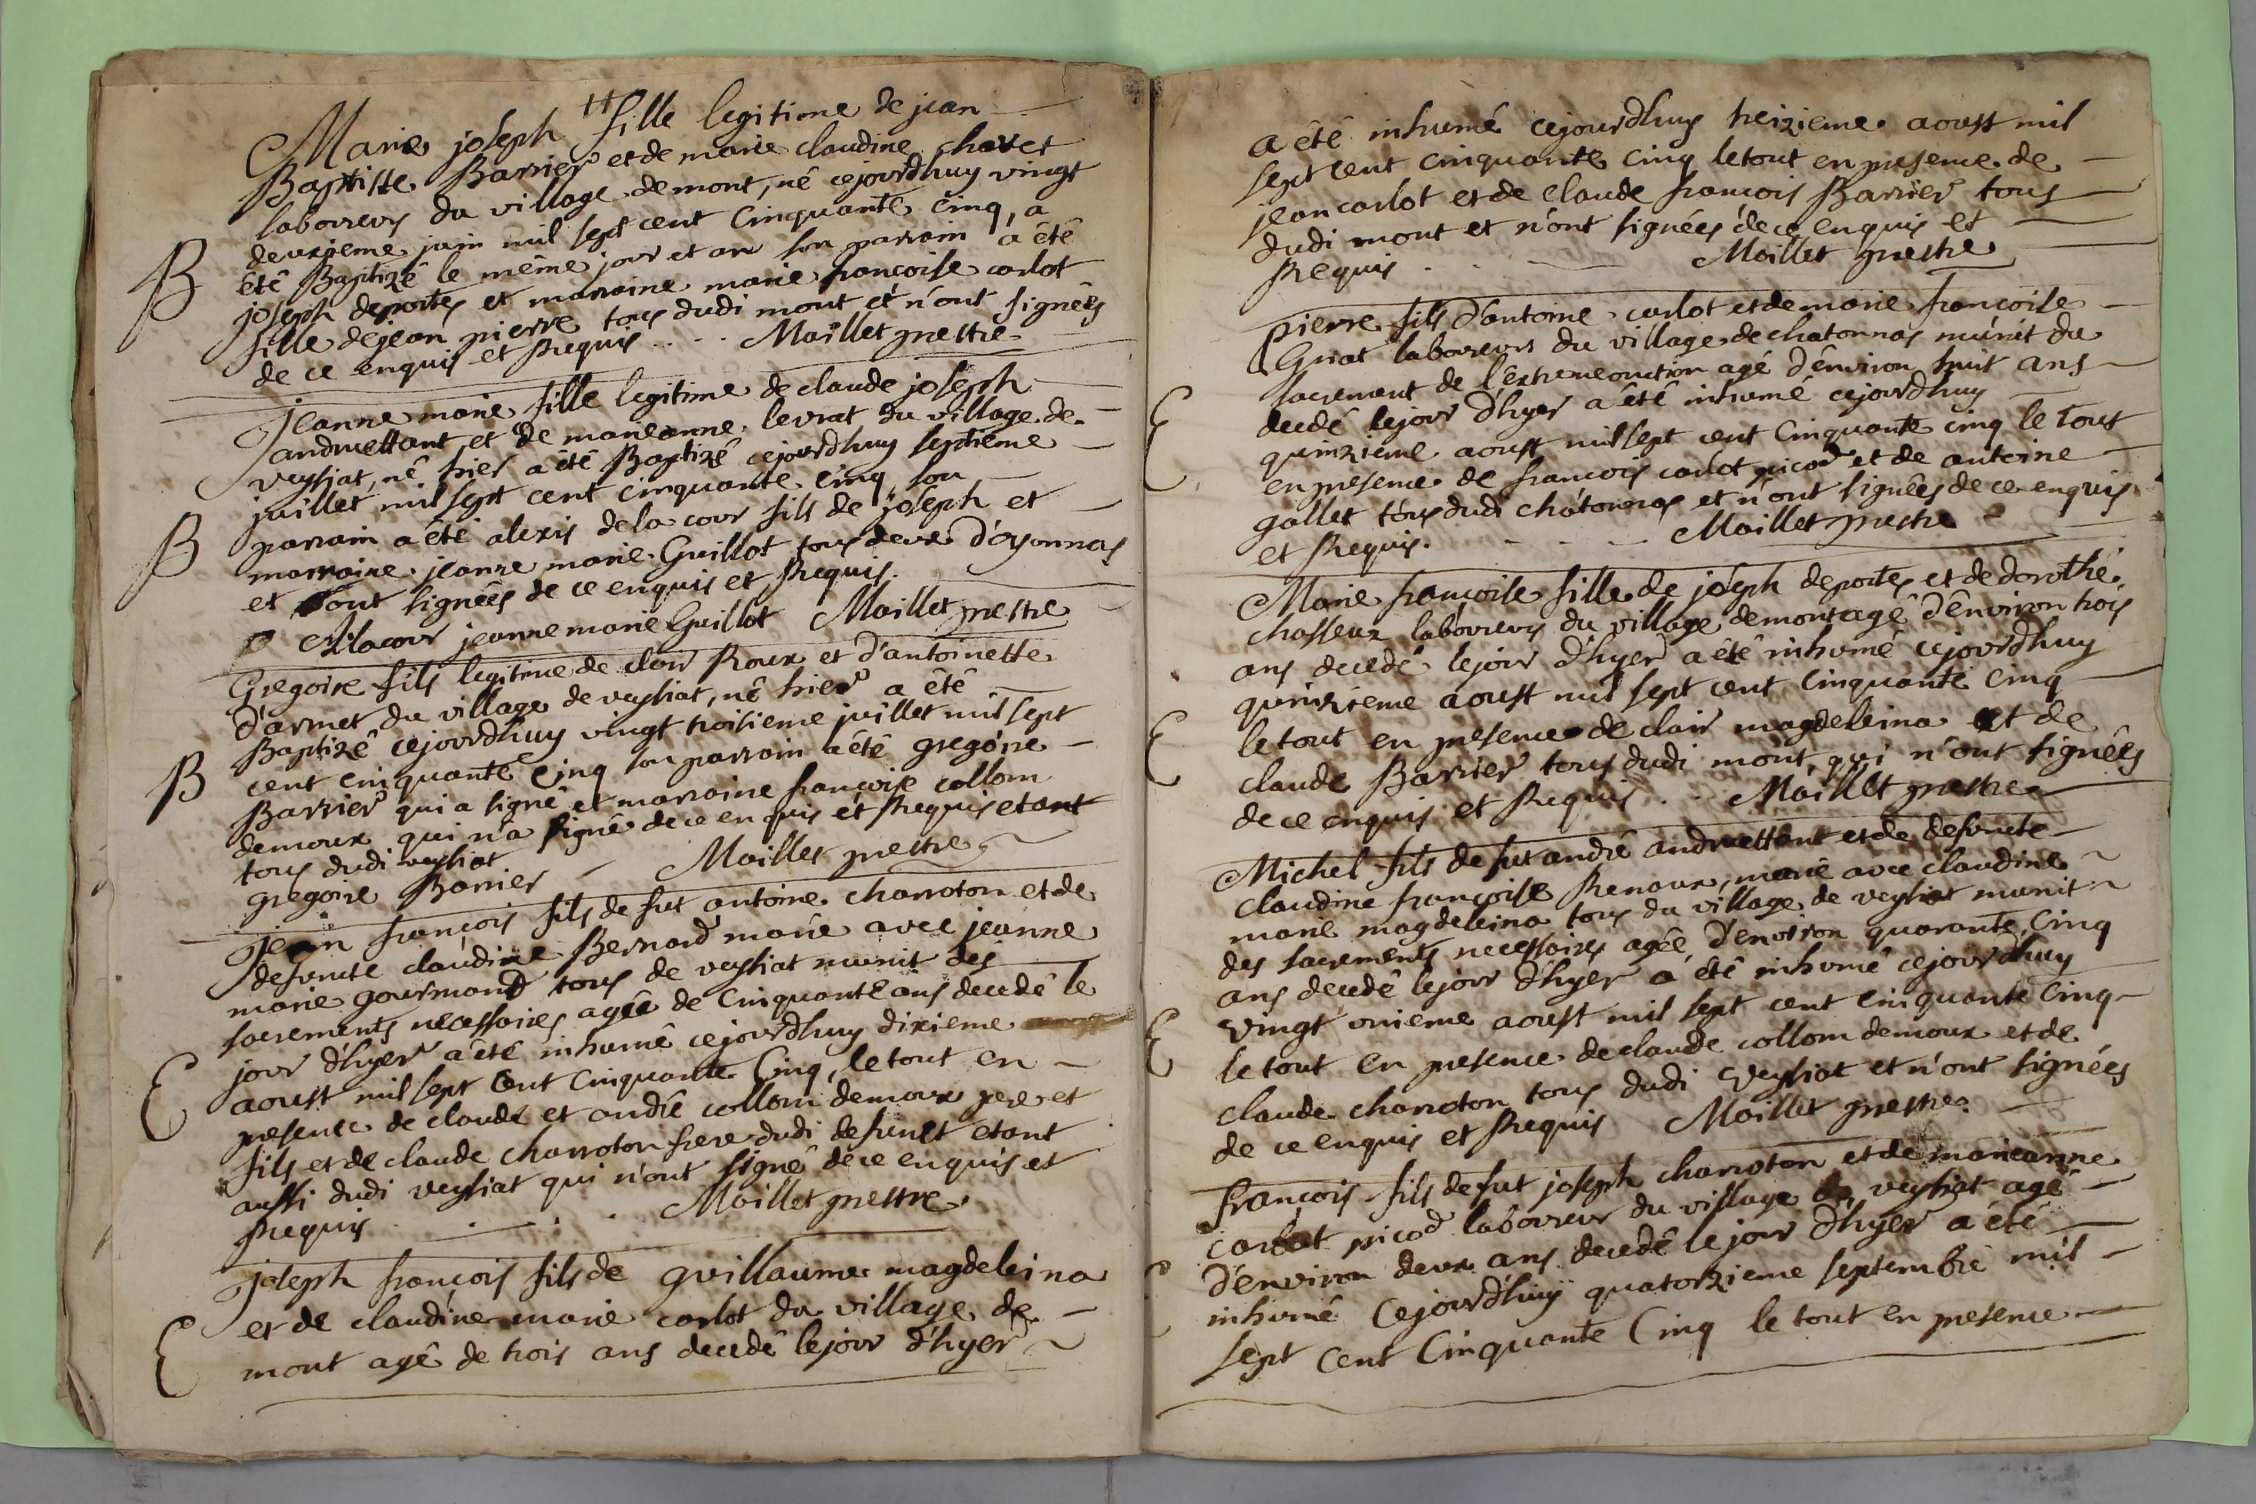 Marie joseph fille legitime de jean
Baptiste Barrier et de marie claudine chavet
laboureurs du village de mont, né cejourdhuy vingt
deuxieme juin mil sept cent Cinquante Cinq, a
été Baptizé le même jour et an son parrain a été
joseph deportes et marraine marie françoise carlot
fille de jean pierre tous dudi mont et n'ont signées
de ce enquis et Requis .... Maillet prestre
B
jeanne marie fille legitime de claude joseph
andruettant et de marieanne levrat du village de
veysiat, né hier a été Baptizé cejourdhuy septieme
juillet mil sept cent cinquante Cinq son
parrain a été alexis de la cour fils de joseph et
marraine jeanne marie Guillot tous deux d'oyonnas
et ont signées de ce enquis et Requis.
Alacour jeanne marie Guillot Maillet prestre
B
Gregoire fils legitime de clair Roux et d'antoinette
d'armet du village de veysiat, né hier a été
Baptizé cejourdhuy vingt troisieme juillet mil sept
cent cinquante Cinq son parrain a été gregoire
Barrier qui a signé et marraine françoise collom
demoux qui n'a signé de ce enquis et Requis etant
tous dudi veysiat
gregoire Barrier Maillet prestre
B
jean françois fils de fut antoine charroton et de
defuncte claudine Bernard marié avec jeanne
marie gourmand tous de veysiat munit des
sacrements necessaires agée de Cinquante ans decedé le
jour d'hyer a été inhumé cejourdhuy dixieme
aoust mil sept Cent Cinquante Cinq, le tout en
presence de claude et andré collom demoux pere et
fils et de claude charroton frere dudi defunct etant
aussi dudi veysiat qui n'ont signé de ce enquis et
Requis . . . Maillet prestre
E
joseph françois fils de guillaume magdeleina
et de claudine marie carlot du village de
mont agé de trois ans decedé le jour d'hyer
E
a été inhumé cejourdhuy treizieme aoust mil
sept cent cinquante cinq le tout en presence de
jean carlot et de claude françois Barrier tous
dudi mont et n'ont signées de ce enquis et
Requis . . Maillet prestre
pierre fils d'antoine carlot et de marie françoise
Griat laboureurs du village de chatonnas munit du
sacrement de l'extremeonction agé d'environ huit ans
decedé le jour d'hyer a été inhumé cejourdhuy
quinzieme aoust mil sept cent Cinquante cinq le tout
en presence de françois carlot picod et de antoine
gallet tous dudi chatonnas et n'ont signées de ce enquis
et Requis. . . . Maillet prestre
E
Marie françoise fille de joseph deportes et de dorothé
chasseux laboureurs du village de mont agé d'environ trois
ans decedé le jour d'hyer a été inhumé cejourdhuy
quinzieme aoust mil sept cent cinquante cinq
le tout en presence de clair magdeleina et de
claude Barrier tous dudi mont, qui n'ont signées
de ce enquis et Requis . . Maillet prestre
E
Michel fils de fut andré andruettant et de defuncte
claudine françoise Renaux, marié avec claudine
marie magdeleina tous du village de veysiat munit
des sacrements necessaires agée d'environ quarante Cinq
ans decedé le jour d'hyer a été inhumé cejourdhuy
vingt onieme aoust mil sept cent cinquante cinq
le tout en presence de claude collom demoux et de
claude charroton tous dudi veysiat et n'ont signées
de ce enquis et Requis Maillet prestre.
E
françois fils de fut joseph charroton et de marieanne
carlot picod laboureur du village de veysiat agé
d'environ deux ans decedé le jour d'hyer a été
inhumé Cejourd'huy quatorzieme septembre mil
sept Cent Cinquante Cinq le tout en presence
E